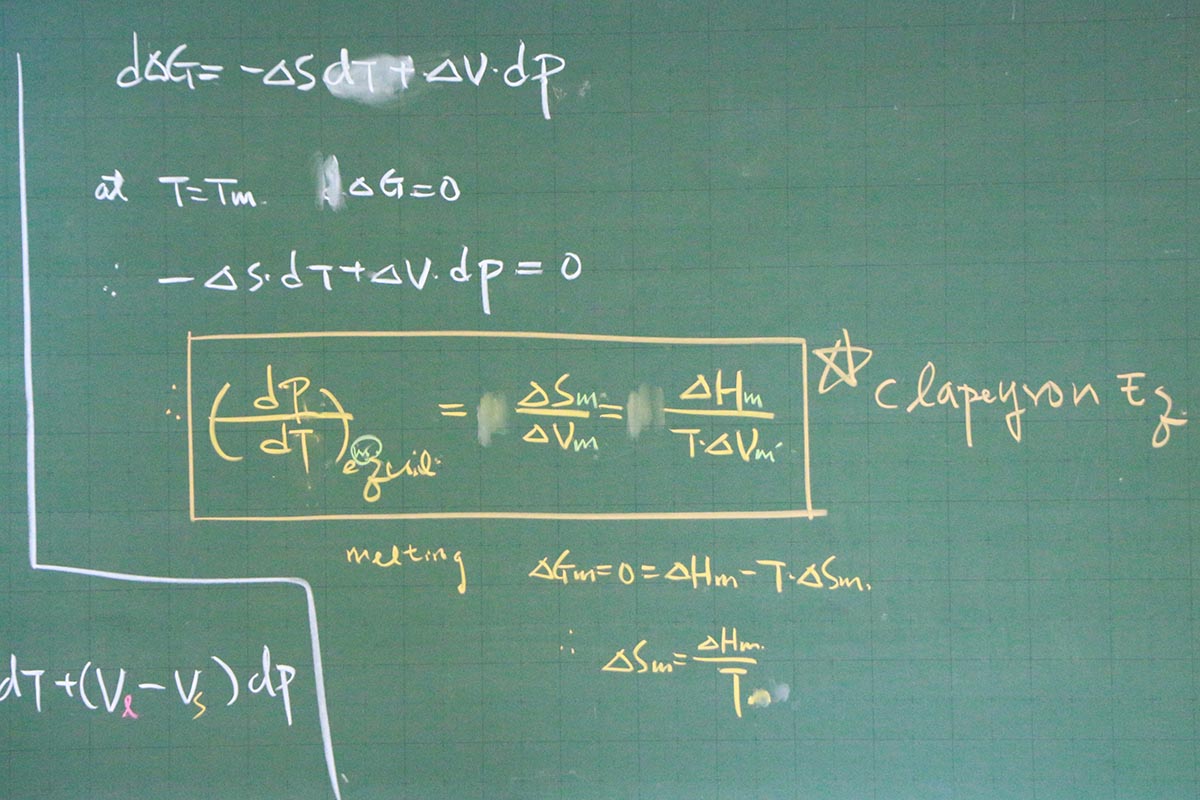 dΔG = -ΔS dT + ΔV·dp
at T=Tm. ΔG=0
∴ -ΔS·dT+ΔV·dp=0
∴ (dP/dT)equil. = ΔSm/ΔVm = ΔHm/T·ΔVm ☆ Clapeyron Eq.
melting ΔGm=0=ΔHm-T·ΔSm.
∴ ΔSm=ΔHm./T
dT+(Vl-Vs)dp